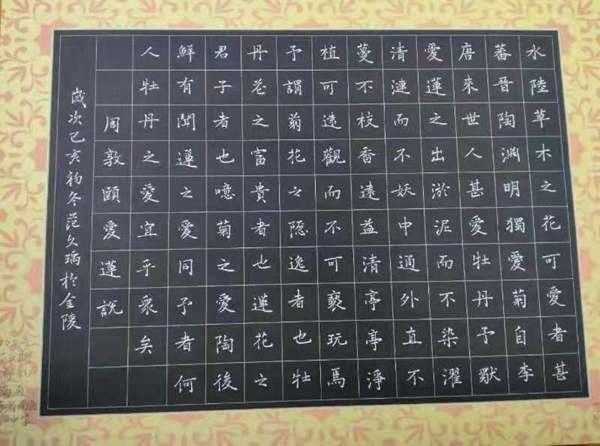 水陸草木之花可愛者甚
蕃晉陶淵明獨愛菊自李
唐來世人甚愛牡丹予獨
愛蓮之出淤泥而不染濯
清漣而不妖中通外直不
蔓不枝香遠益清亭亭淨
植可遠觀而不可褻玩焉
予謂菊花之隐逸者也牡
丹花之富貴者也蓮花之
君子者也噫菊之愛陶後
鮮有聞蓮之愛同予者何
人牡丹之愛宜乎衆矣
周敦頤愛蓮說
歲次己亥初冬范於金陵